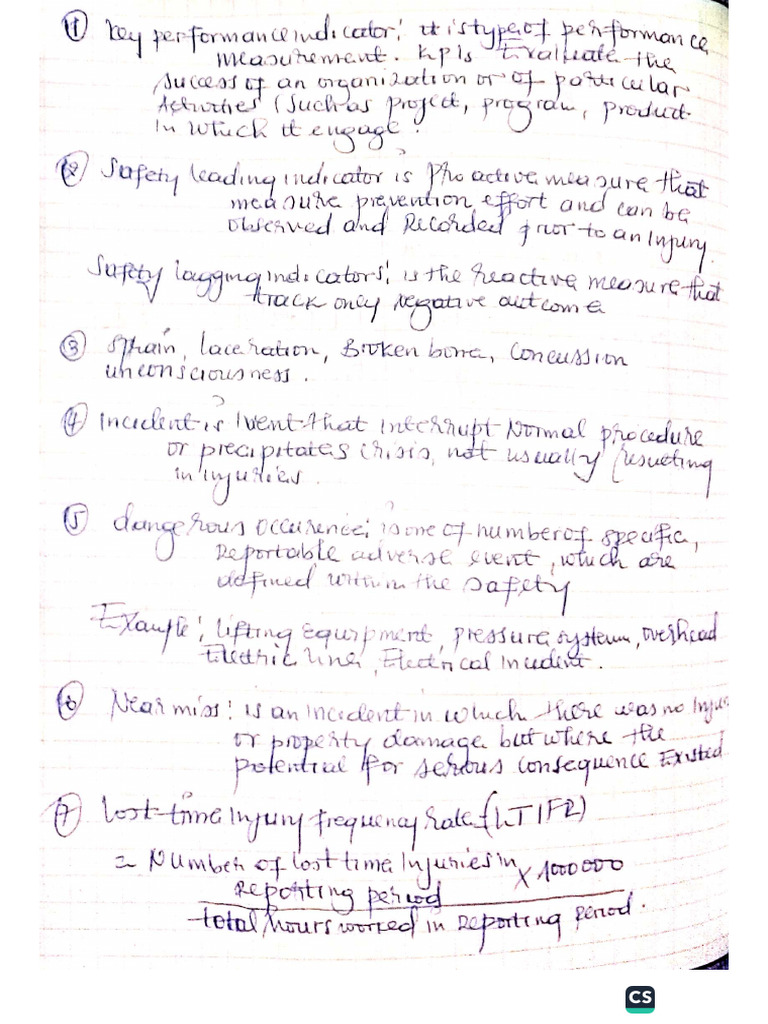 ① Key performance indicator: it is type of performance
measurement. KPIs Evaluate the
success of an organization or of particular
Activities (such as project, program, product
in which it engage.
② Safety leading indicator is pro active measure that
measure prevention effort and can be
observed and Recorded prior to an injury.
Safety lagging indicators: is the reactive measure that
track only negative outcome
③ Sprain, laceration, Broken bone, Concussion
unconsciousness.
④ incident is Ivent that interrupt Normal procedure
or precipitates crisis, not usually resulting
in injuries.
⑤ dangerous occurence: is one of number of specific,
Reportable adverse event, which are
defined within the safety
Example: lifting equipment, pressure system, overhead
Electric line, Electrical incident.
⑥ Near miss: is an incident in which there was no Injury
or property damage but where the
potential for serious consequence Existed
⑦ Lost-time Injury frequency rate (LTIFR)
= Number of lost time Injuries in
Reporting period × 1000000
total hours worked in Reporting period.
CS